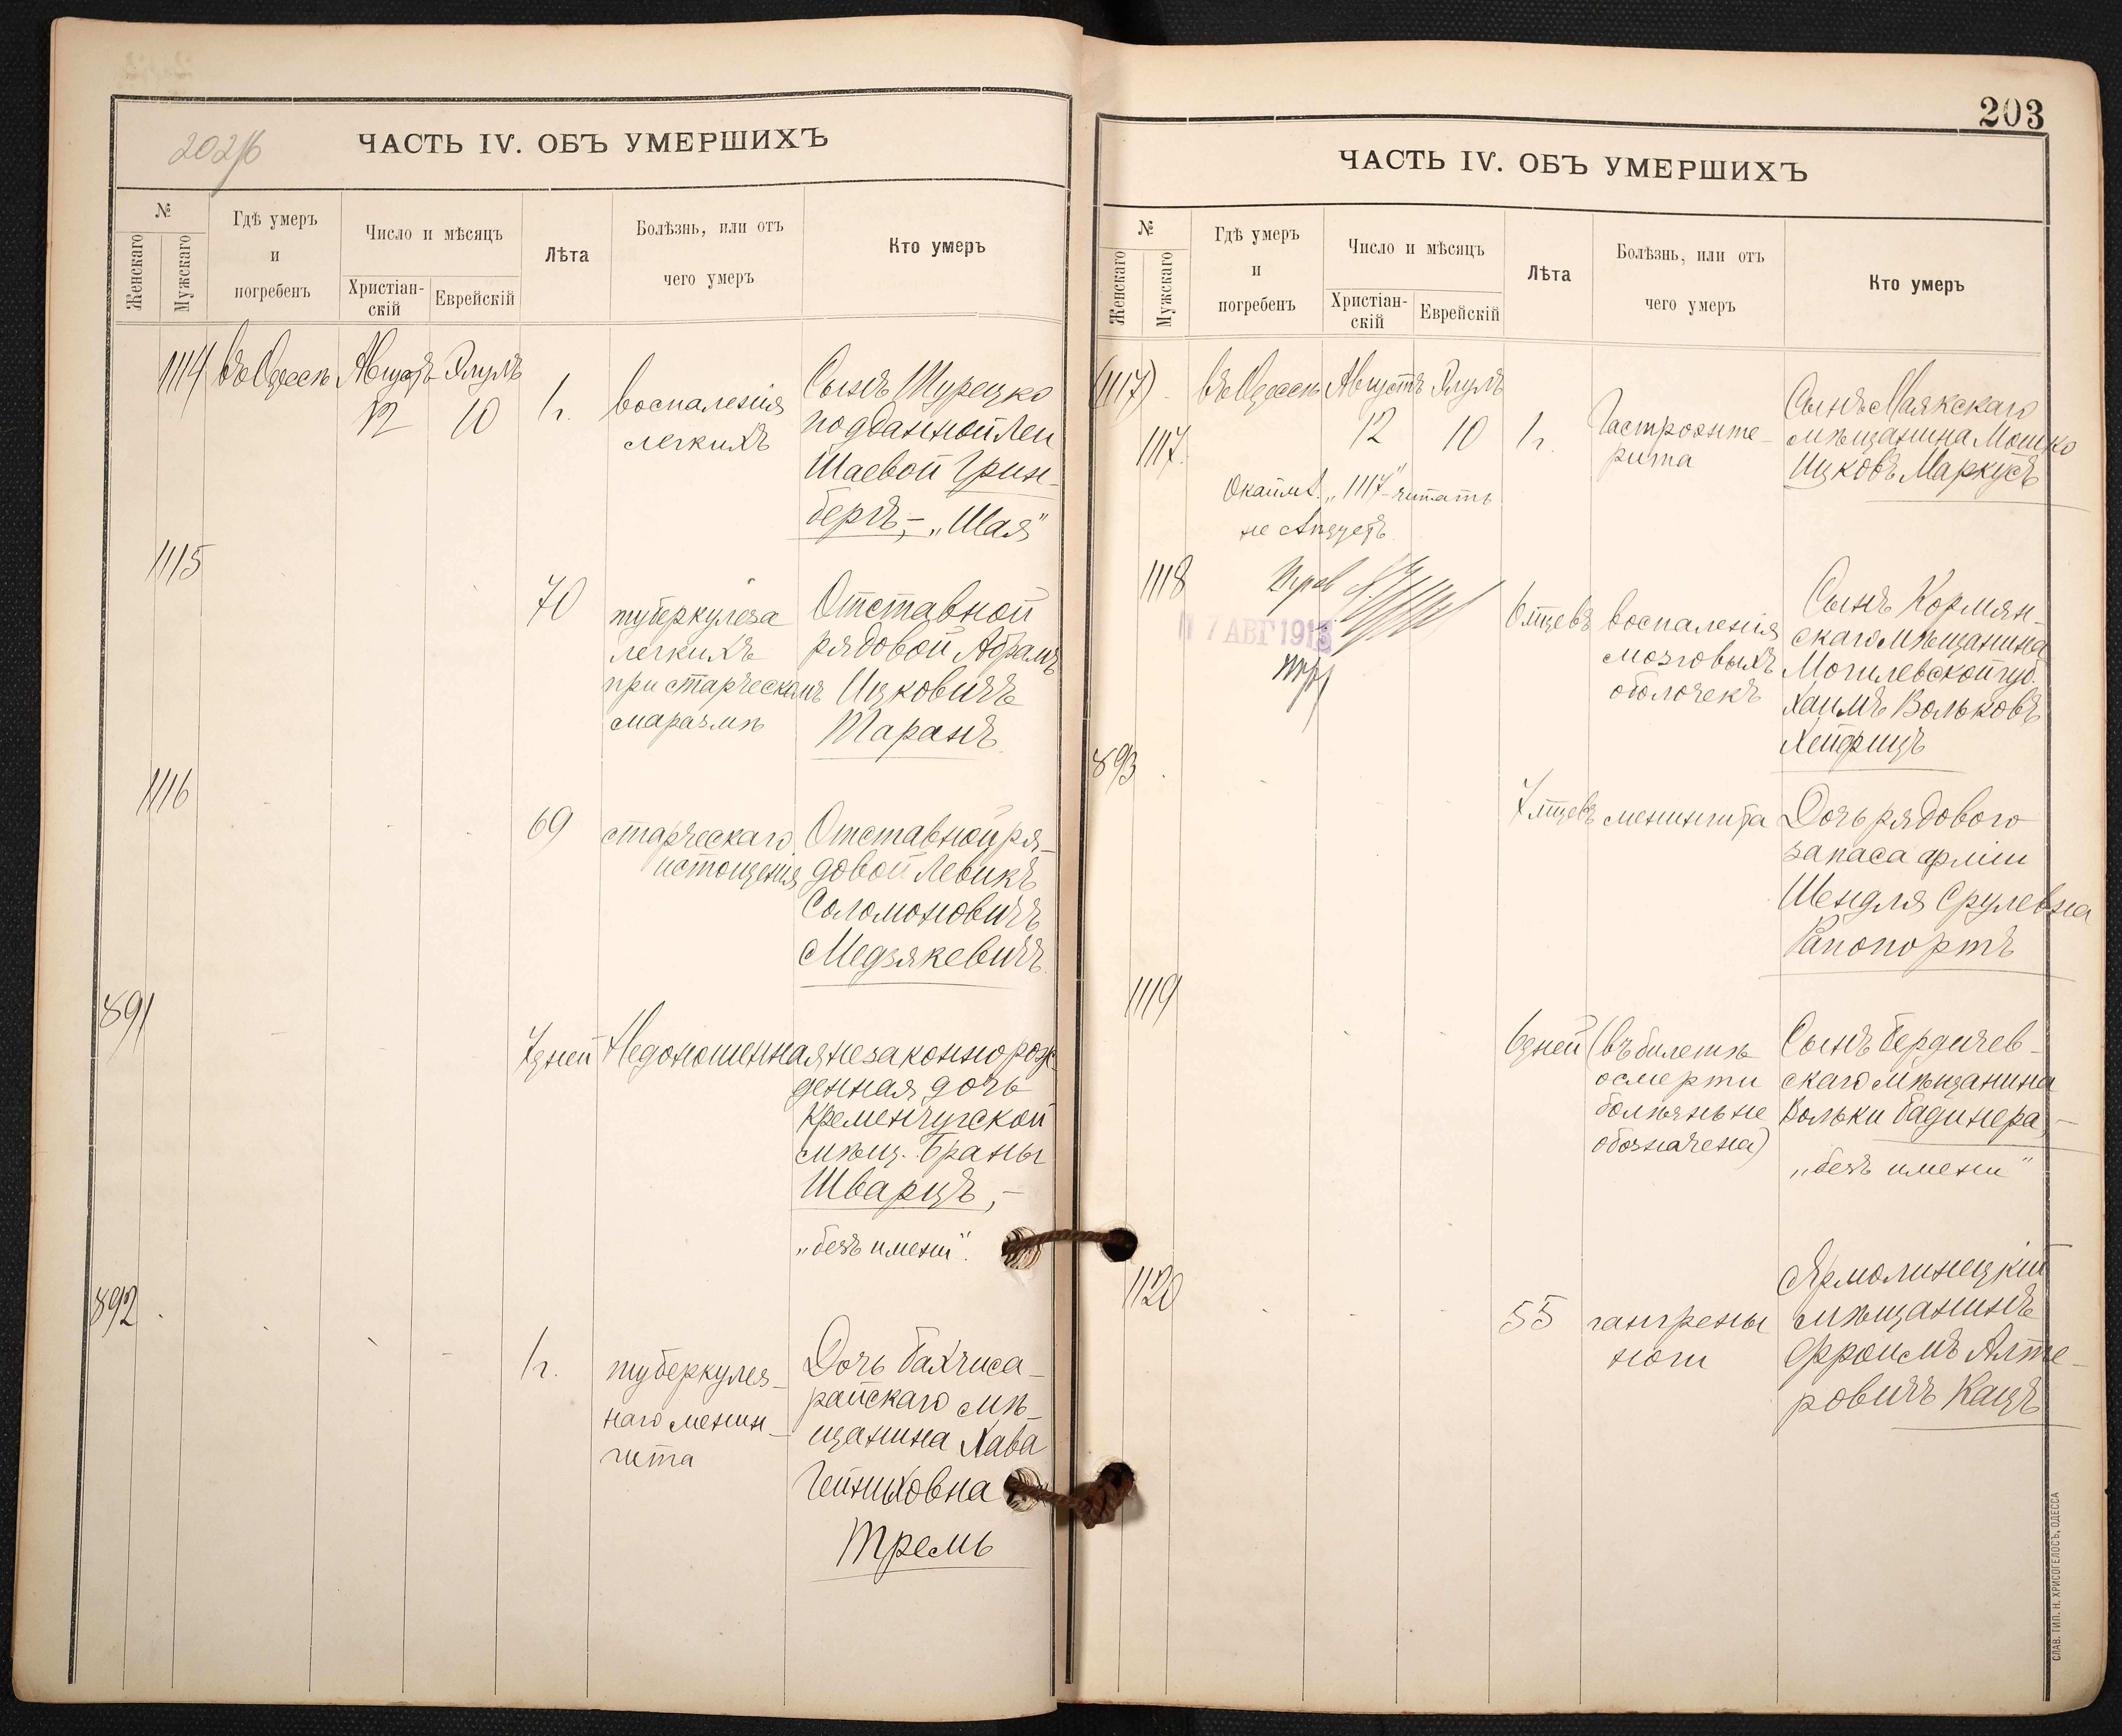 202/б
ЧАСТЬ IV. ОБЪ УМЕРШИХЪ
№
Женскаго
Мужскаго
Гдѣ умеръ
и
погребенъ
Число и мѣсяцъ
Христіан-
скій
Еврейскій
Лѣта
Болѣзнь, или отъ
чего умеръ
Кто умеръ
1114 въ Одессѣ Августъ Элулъ
12 10 1 г. воспаленія
легкихъ
Сынъ Турецко
подданной Леи
Шаевой Грин-
бергъ, - „Шая"
1115
70 туберкулеза
легкихъ
при старческомъ
маразмѣ
Отставной
рядовой Абрамъ
Ицковичъ
Таранъ
1116
69 старческаго
истощенія
Отставной ря-
довой Левикъ
Соломоновичъ
Медзякевичъ
891
7 дней Недоношенная незаконнорож-
денная дочь
Кременчугской
мѣщ. Браны
Шварцъ, -
„безъ имени".
892
1 г. туберкулез-
наго менин-
гита
Дочь Бахчиса-
райскаго мѣ-
щанина Хава
Гейниховна
Тремь
203
ЧАСТЬ IV. ОБЪ УМЕРШИХЪ
№
Женскаго
Мужскаго
Гдѣ умеръ
и
погребенъ
Число и мѣсяцъ
Христіан-
скій
Еврейскій
Лѣта
Болѣзнь, или отъ
чего умеръ
Кто умеръ
(1117) въ Одессѣ Августъ Элулъ
1117. 12 10 1 г. Гастроэнте-
рита
Сынъ Маякскаго
мѣщанина Мошко
Ицковъ Маркусъ
„1117" читать
не слѣдуетъ.
1118
17 АВГ 1913
6 мцевъ воспаленія
мозговыхъ
оболочекъ
Сынъ Кормян-
скаго мѣщанина
Могилевской губ.
Хаимъ Вольковъ
Хейфицъ
893
7 мцевъ менингита
Дочь рядового
запаса арміи
Шендля Срулевна
Рапопортъ
1119
6 дней (въ билетѣ
о смерти
болѣзнь не
обозначена)
Сынъ Бердичев-
скаго мѣщанина
Вольки Бадинера, -
„безъ имени"
1120
55 гангрены
ноги
Ярмолинецкій
мѣщанинъ
Фроимъ Алте-
ровичъ Кацъ
СЛАВ. ТИП. Н. ХРИСОГЕЛОСЪ, ОДЕССА